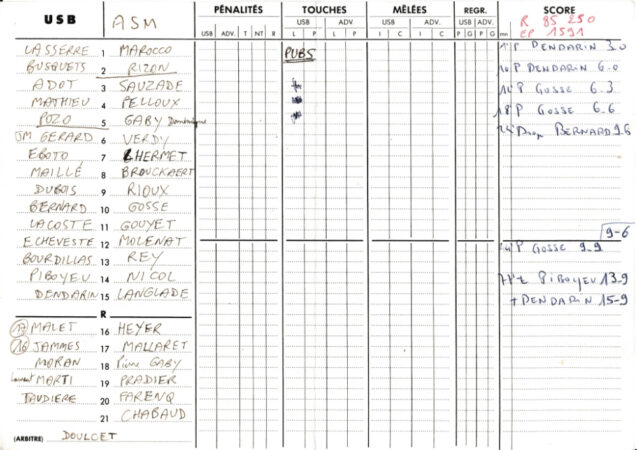 USB ASM PÉNALITÉS TOUCHES MÊLÉES REGR. SCORE
R 85 250
CP 1591
USB ADV. T NT R USB ADV. USB ADV. USB ADV. mn
L P L P I C I C P G P G
LASSERRE 1 MAROCCO PUBS P DENDARIN 3.0
BUSQUETS 2 RIZON P DENDARIN 6.0
ADOT 3 SAUZADE P GOSSE 6.3
MATHIEU 4 PELLOUX 18' P GOSSE 6.6
POZO 5 GABY Dominique Drop BERNARD 9.6
JM GERARD 6 VERDY
EBOTO 7 LHERMET
MAILLÉ 8 BROUCKAERT
DUBOIS 9 RIOUX
BERNARD 10 GOSSE
LACOSTE 11 GOUYET 9-6
ECHEVESTE 12 MOLENAT P GOSSE 9.9
BOURDILLAS 13 REY
PIBOYEU 14 NICOL PIBOYEU 13.9
DENDARIN 15 LANGLADE + DENDARIN 15-9
R
17 MALET 16 HEYER
16 JAMMES 17 MALLARET
MORAN 18 Pierre GABY
Laurent MARTI 19 PRADIER
TAUDIERE 20 FARENQ
21 CHABAUD
(ARBITRE) DOULCET